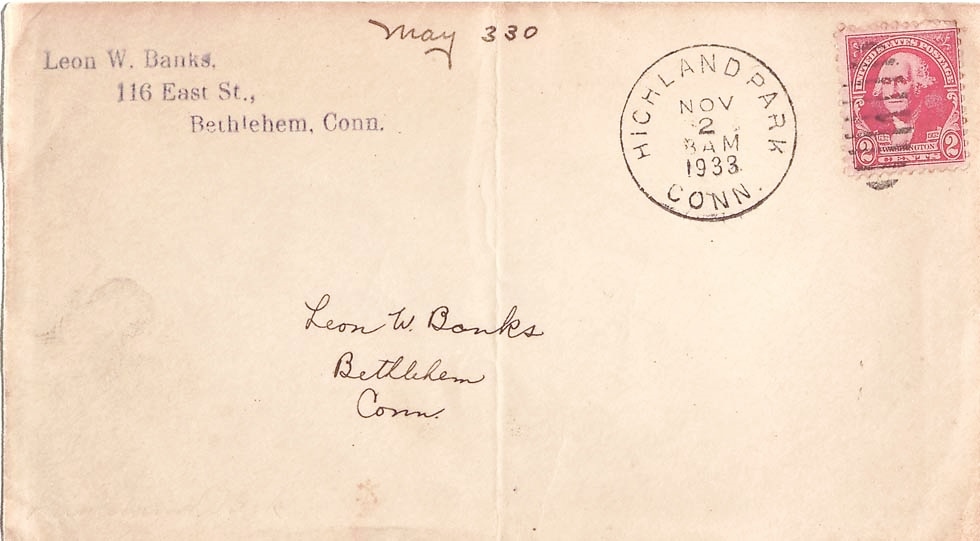 May 330
Leon W. Banks.
116 East St.,
Bethlehem, Conn.
HIGHLAND PARK
NOV
2
8 AM
1933
CONN.
UNITED STATES POSTAGE
WASHINGTON
2 2
CENTS
Leon W. Banks
Bethlehem
Conn.